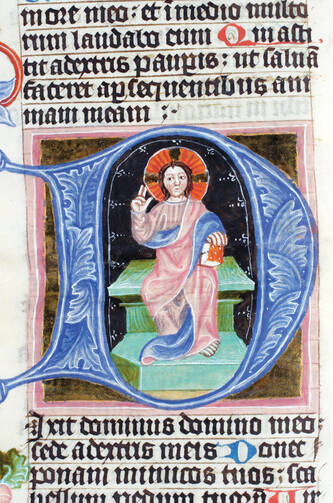 more meo: et i medio multo
rum laudabo eum Quia asti
tit adextris paupis: ut saluā
faceret apsequentibus ani
mam meam :
D
ixit dominus domino meo:
sede adextris meis Donec
ponam inimicos tuos: sca
bellum pedum tuoꝝ